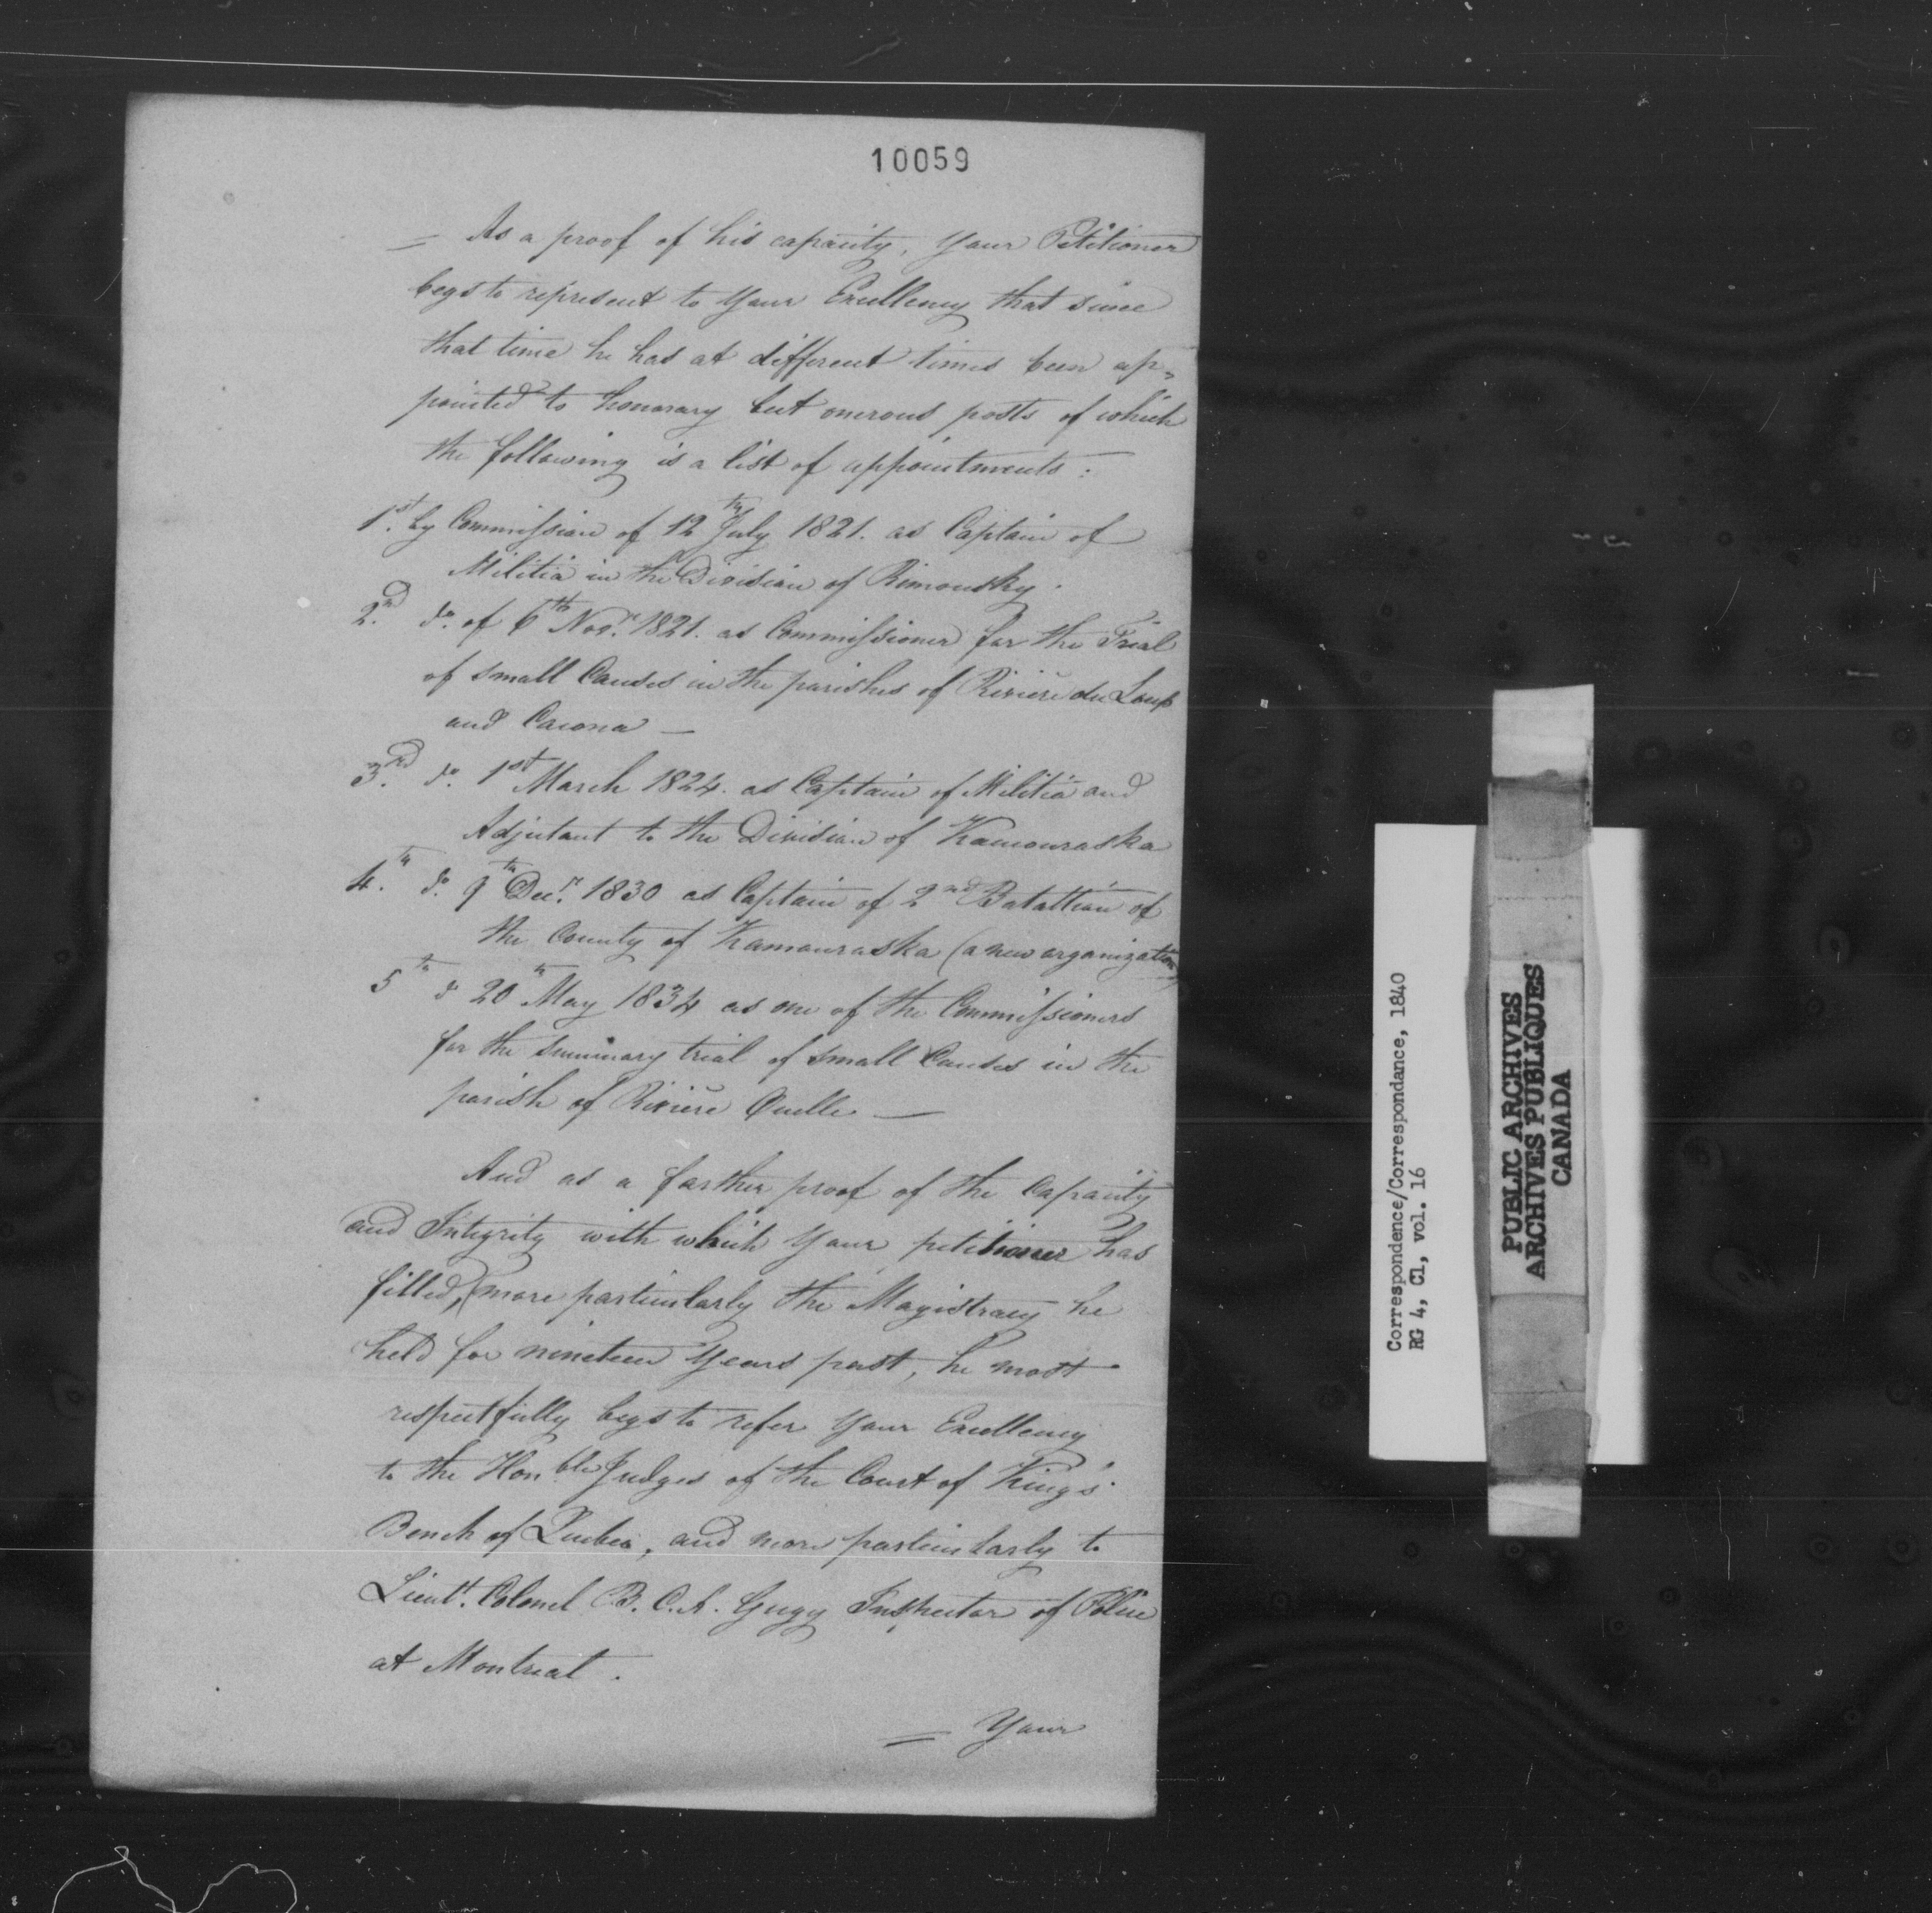 10059
= As a proof of his capacity, Your Petitioner
begs to represent to Your Excellency that since
that time he has at different times been ap=
pointed to honorary but onerous posts of which
the following is a list of appointments :
1st. by Commission of 12th July 1821. as Captain of
Militia in the Division of Rimousky.
2nd. do. of 6th Novr. 1821. as Commissioner for the Trial
of small Causes in the parishes of Riviere du Loup
and Cacona —
3rd. do. 1st March 1824. as Captain of Militia and
Adjutant to the Division of Kamouraska
4.th do. 9th Decr. 1830 as Captain of 2nd Batallion of
the County of Kamouraska (a new organization)
5th do 20th May 1834 as one of the Commissioners
for the summary trial of small Causes in the
parish of Riviere Ouelle —
And as a farther proof of the Capacity
and Integrity with which Your petitioner has
filled, (more particularly the Magistracy he
held for nineteen Years past, he most
respectfully begs to refer Your Excellency
to the Honble. Judges of the Court of King's
Bench of Quebec, and more particularly to
Lieutt. Colonel B. C. A. Gugy Inspector of Police
at Montreal.
= Your
Correspondence/Correspondance, 1840
RG 4, C1, vol. 16
PUBLIC ARCHIVES
ARCHIVES PUBLIQUES
CANADA